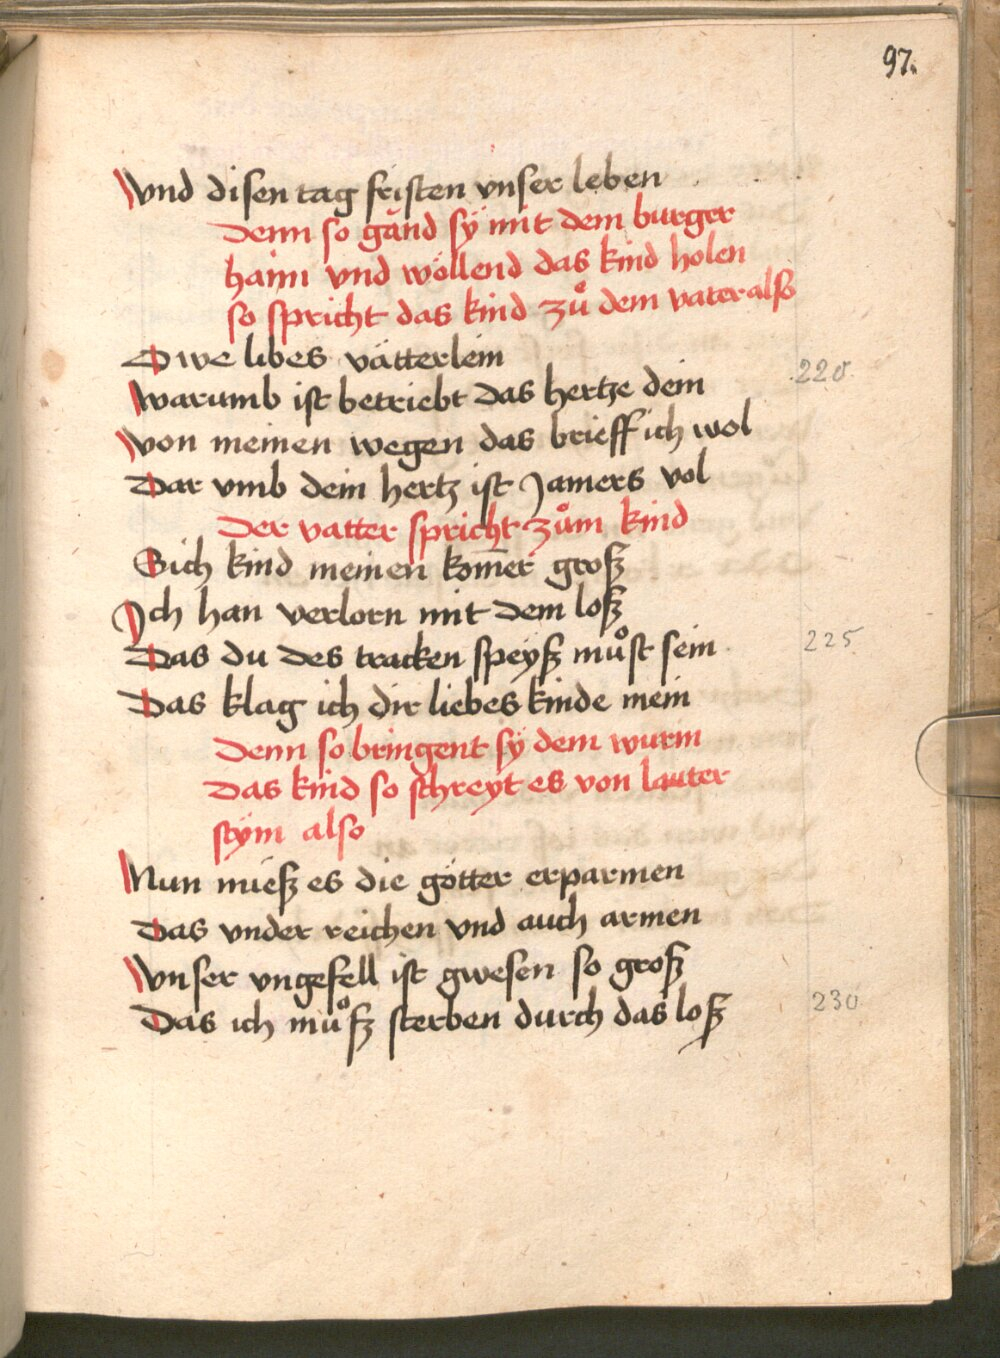 97.
Vnd disen tag fristen vnser leben
Denn so gänd sÿ mit dem burger
haim vnd wöllend das kind holen
so spricht das kind zuͦ dem vater also
Owe libes vätterlein
220
Warumb ist betriebt das hertze dein
Von meinen wegen das brieff ich wol
Dar vmb dein hertz ist Jamers vol
Der vatter spricht zuͦm kind
Sich kind meinen kom̄er groß
Ich han verlorn mit dem loß
Das du des tracken speyß muͦst sein
225
Das klag ich dir liebes kinde mein
Denn so bringent sÿ dem wurm
Das kind so schreÿt es von lauter
stÿm also
Nun mieß es die götter erparmen
Das vnder reichen vnd auch armen
Vnser vngefell ist gwesen so groß
Das ich muͦß sterben durch das loß
230